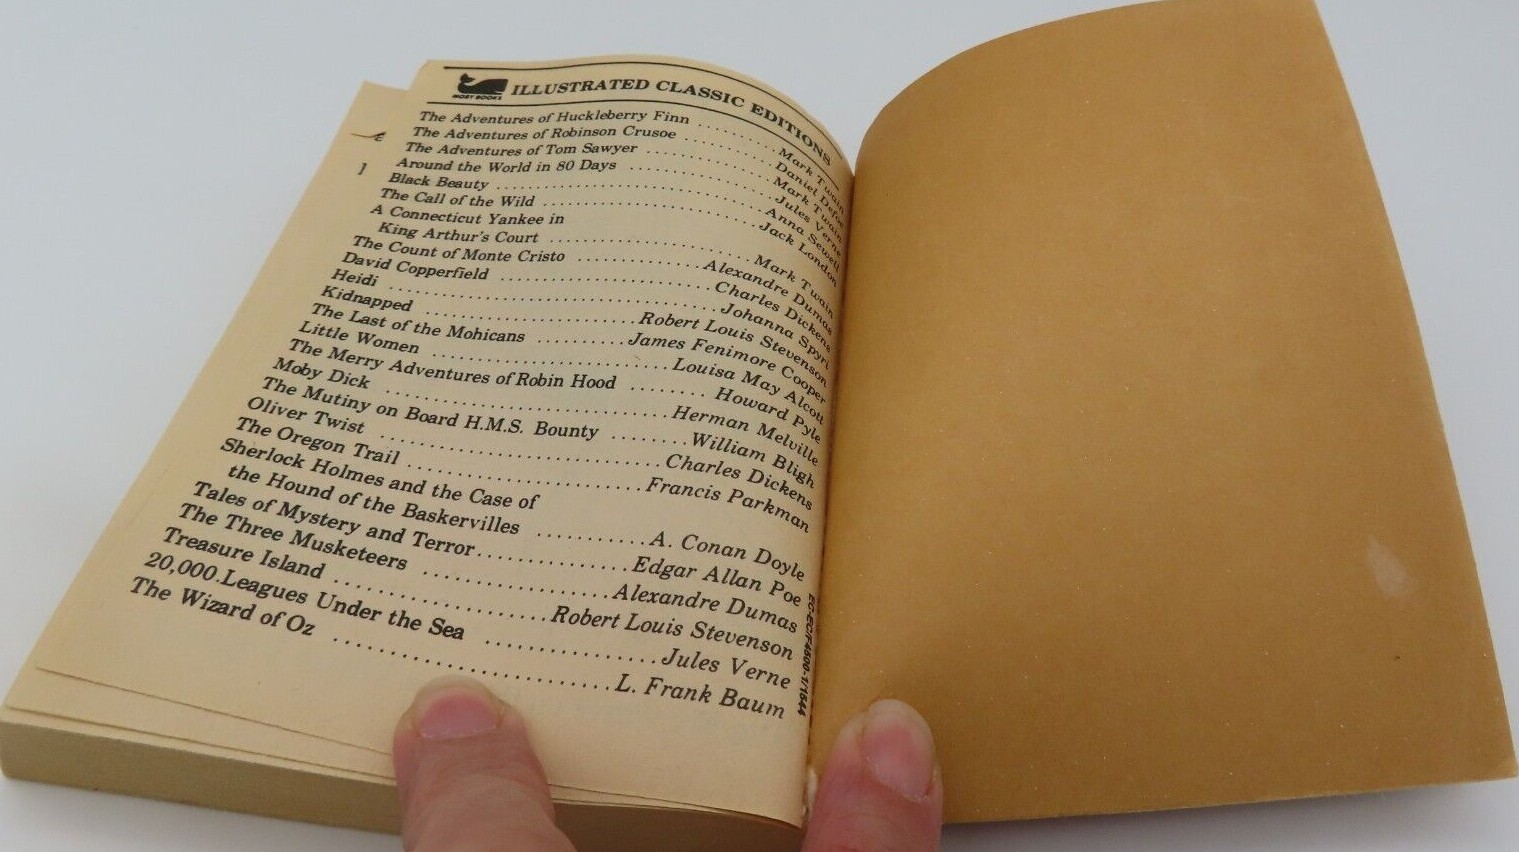 MOBY BOOKS
ILLUSTRATED CLASSIC EDITIONS
The Adventures of Huckleberry Finn .......... Mark Twain
The Adventures of Robinson Crusoe .......... Daniel Defoe
The Adventures of Tom Sawyer .......... Mark Twain
Around the World in 80 Days .......... Jules Verne
Black Beauty .......... Anna Sewell
The Call of the Wild .......... Jack London
A Connecticut Yankee in
King Arthur's Court .......... Mark Twain
The Count of Monte Cristo .......... Alexandre Dumas
David Copperfield .......... Charles Dickens
Heidi .......... Johanna Spyri
Kidnapped .......... Robert Louis Stevenson
The Last of the Mohicans .......... James Fenimore Cooper
Little Women .......... Louisa May Alcott
The Merry Adventures of Robin Hood .......... Howard Pyle
Moby Dick .......... Herman Melville
The Mutiny on Board H.M.S. Bounty .......... William Bligh
Oliver Twist .......... Charles Dickens
The Oregon Trail .......... Francis Parkman
Sherlock Holmes and the Case of
the Hound of the Baskervilles .......... A. Conan Doyle
Tales of Mystery and Terror .......... Edgar Allan Poe
The Three Musketeers .......... Alexandre Dumas
Treasure Island .......... Robert Louis Stevenson
20,000 Leagues Under the Sea .......... Jules Verne
The Wizard of Oz .......... L. Frank Baum